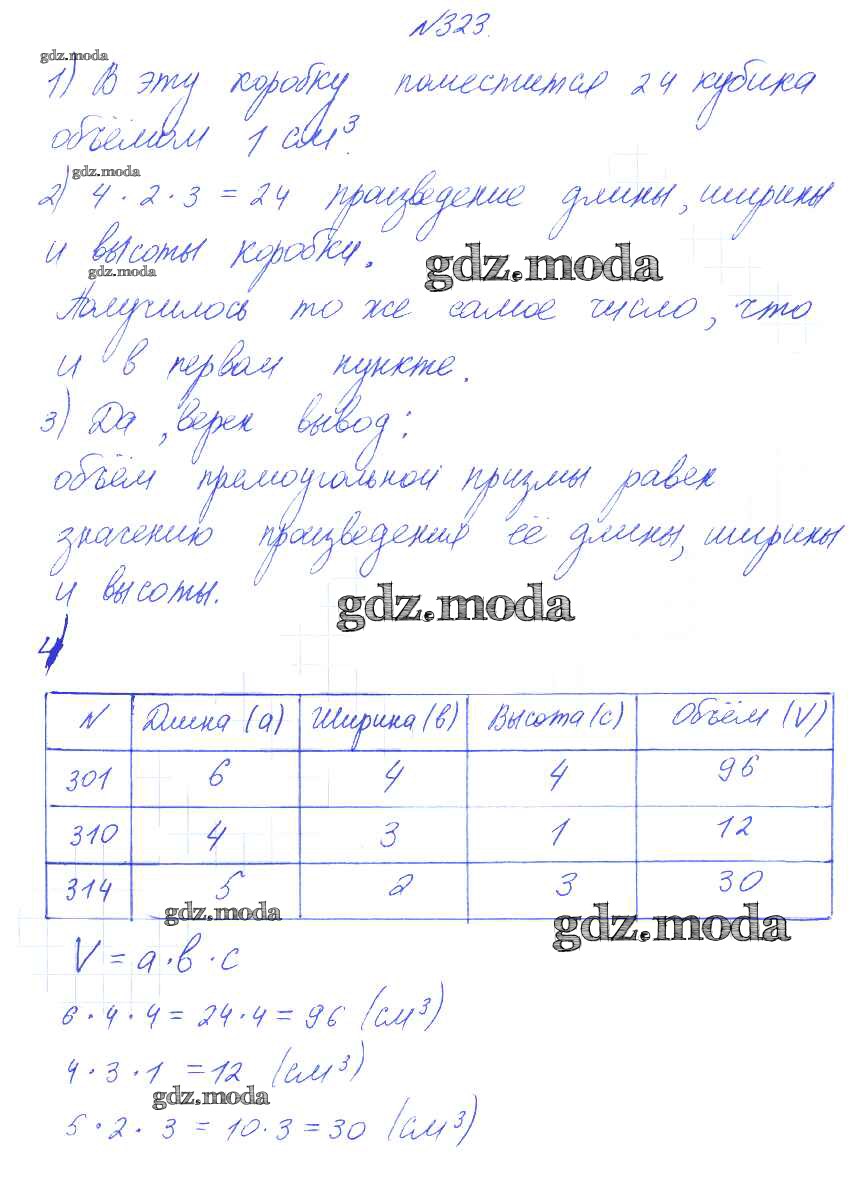 N323.
gdz.moda
1) В эту коробку поместится 24 кубика
объёмом 1 см³.
gdz.moda
2) 4 · 2 · 3 = 24 произведение длины, ширины
и высоты коробки.
gdz.moda
gdz.moda
Получилось то же самое число, что
и в первом пункте.
3) Да, верен вывод:
объём прямоугольной призмы равен
значению произведения её длины, ширины
и высоты.
gdz.moda
4)
N Длина (а) Ширина (в) Высота (с) Объём (V)
301 6 4 4 96
310 4 3 1 12
314 5 2 3 30
gdz.moda
gdz.moda
V = а · в · с
6 · 4 · 4 = 24 · 4 = 96 (см³)
4 · 3 · 1 = 12 (см³)
gdz.moda
5 · 2 · 3 = 10 · 3 = 30 (см³)